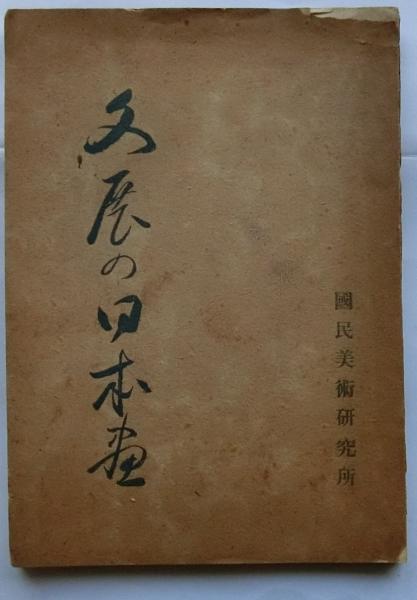 文展の日本画
國民美術研究所